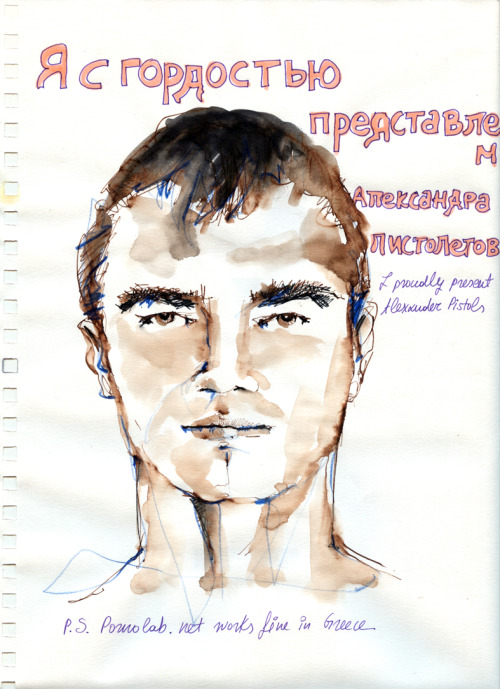 Я с гордостью
представле
м
Александра
Пистолетов
I proudly present
Alexander Pistols
P.S. Pornolab.net works fine in Greece